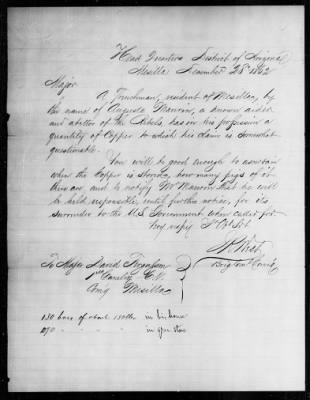 Head Quarters District of Arizona
Mesilla December 28" 1862
Major
A Frenchman, resident of Mesilla, by
the name of Augusta Manrin, a known aider
and abettor of the Rebels, has in his possession a
quantity of Copper to which his claim is somewhat
questionable.
You will be good enough to ascertain
where the Copper is stored, how many pigs of it
there are and to notify Mr Manrin that he will
be held responsible, until further notice, for its
surrender to the U.S. Government when called for
Very respy Yr Obt Svt
J R West
Brig Genl Comdg
To Major David Fergusson
1st Cavalry C.V.
Comg Mesilla
130 bars of about 150 lbs in his house
190 " " " " in